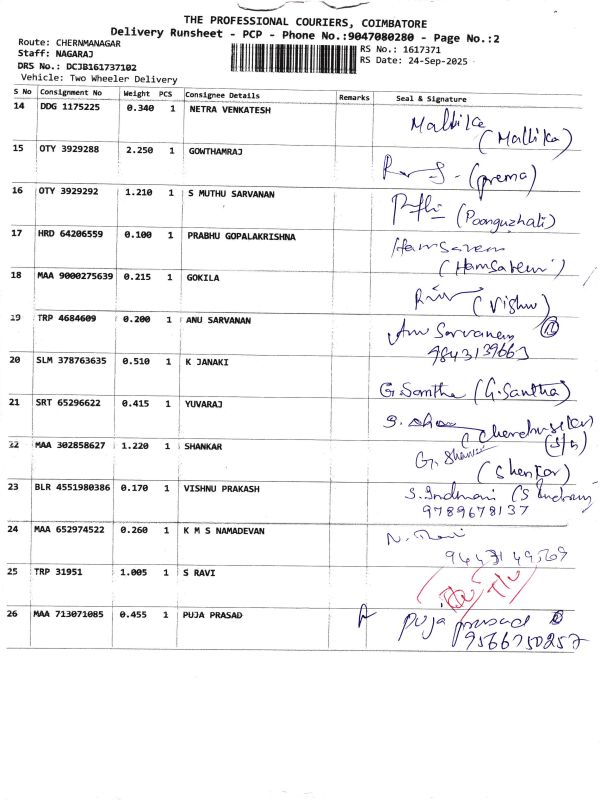 THE PROFESSIONAL COURIERS, COIMBATORE
Delivery Runsheet - PCP - Phone No.:9047080280 - Page No.:2
Route: CHERNMANAGAR
Staff: NAGARAJ
DRS No.: DCJB161737102
Vehicle: Two Wheeler Delivery
RS No.: 1617371
RS Date: 24-Sep-2025
S No Consignment No Weight PCS Consignee Details Remarks Seal & Signature
14 DDG 1175225 0.340 1 NETRA VENKATESH Mallika (Mallika)
15 OTY 3929288 2.250 1 GOWTHAMRAJ (prema)
16 OTY 3929292 1.210 1 S MUTHU SARVANAN (Poonguzhali)
17 HRD 64206559 0.100 1 PRABHU GOPALAKRISHNA Hamsaveni (Hamsaveni)
18 MAA 9000275639 0.215 1 GOKILA (Vishnu)
19 TRP 4684609 0.200 1 ANU SARVANAN Anu Sarvanan
9843139663
20 SLM 378763635 0.510 1 K JANAKI G.Santha (G.Santha)
21 SRT 65296622 0.415 1 YUVARAJ
22 MAA 302858627 1.220 1 SHANKAR (Shankar)
23 BLR 4551980386 0.170 1 VISHNU PRAKASH S.Indhrani
9789678137
24 MAA 652974522 0.260 1 K M S NAMADEVAN
25 TRP 31951 1.005 1 S RAVI
26 MAA 713071085 0.455 1 PUJA PRASAD puja prasad
9566750257